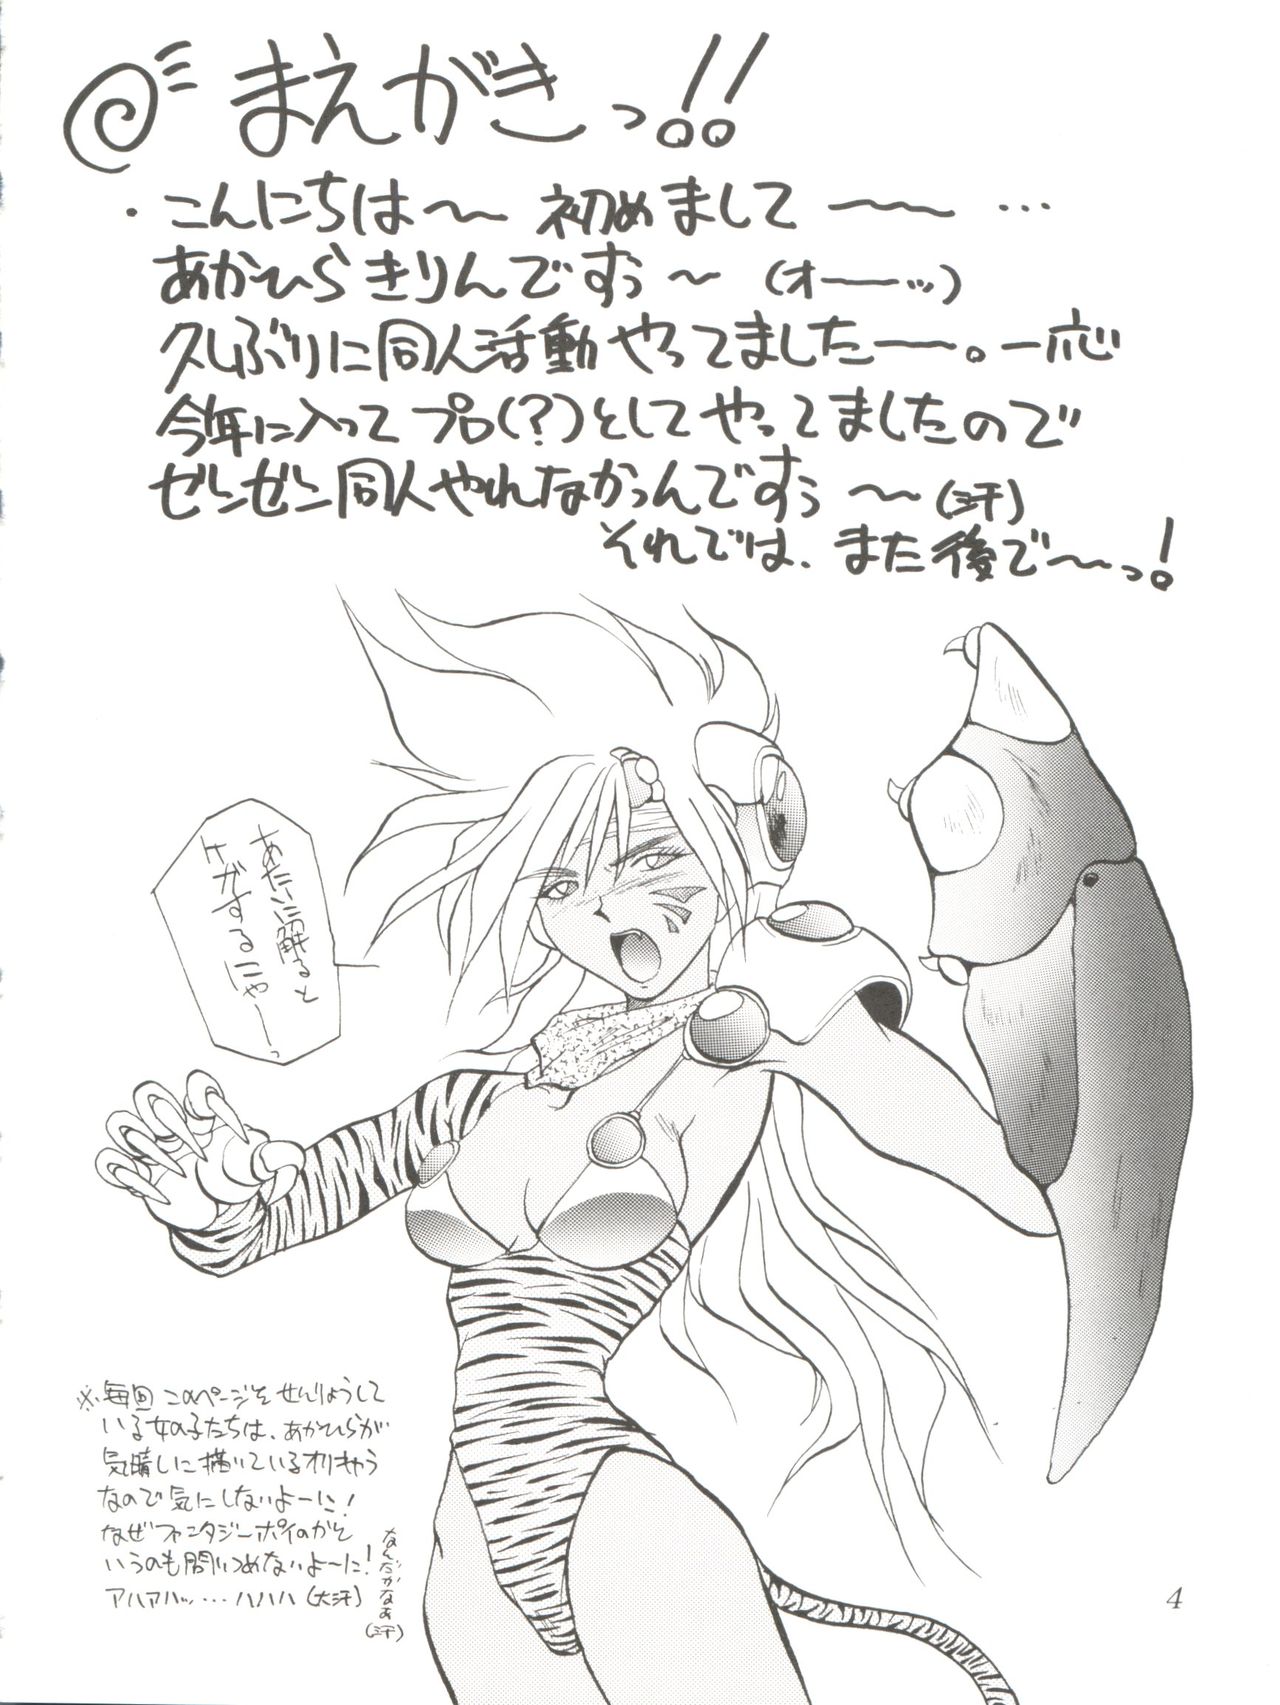 まえがきっ!!
・こんにちは〜〜 初めまして 〜〜 …
あかひらきりんですぅ〜 (オーーッ)
久しぶりに同人活動やってましたーー。一応
今年に入ってプロ(?)としてやってましたので
ゼンゼン同人やれなかったんですぅ〜〜(汗)
それでは、また後で〜〜っ!
あたいに触ると
ケガするにゃーーっ
※毎回このページをせんりょうして
いる女の子たちは、あかひらが
気晴しに描いているオリキャラ
なので気にしないよーに!
なぜファンタジーポイのかと
いうのも問いつめないよ〜に!
アハアハッ…ハハハ(大汗)
なんだかなぁ(汗)
4